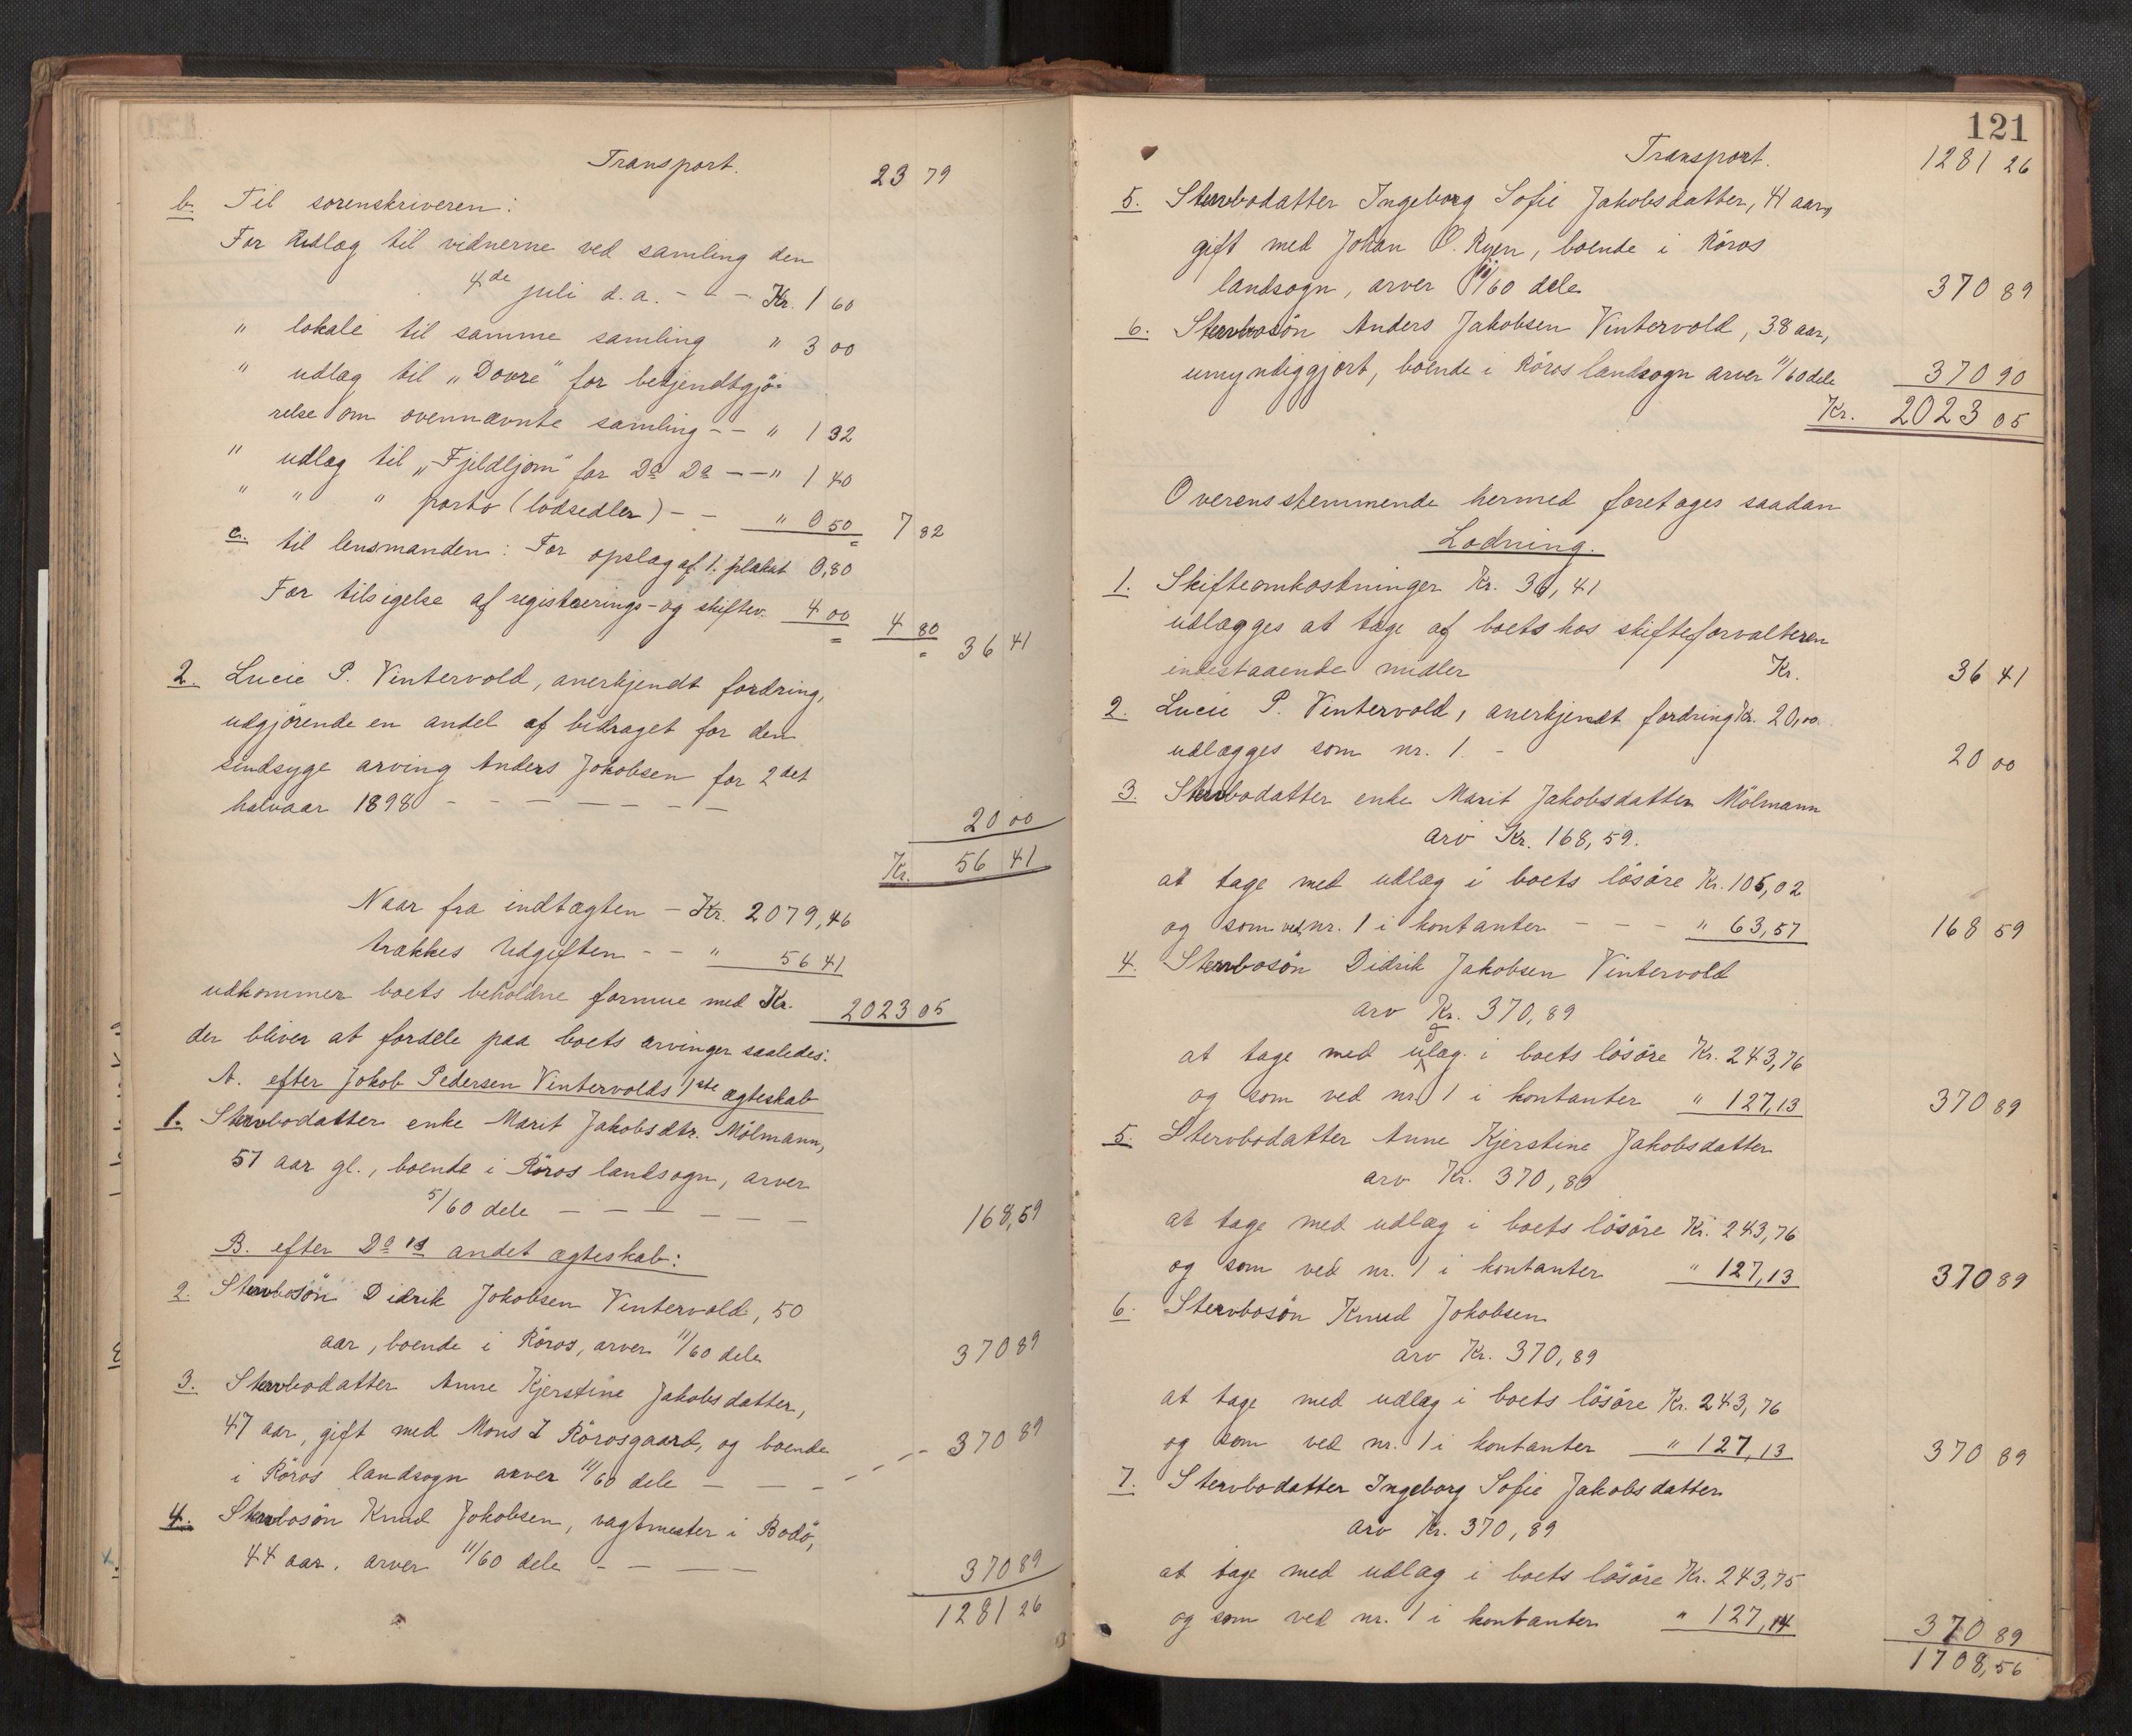 Transport. 23 79
b. Til sorenskriveren:
For Udlæg til vidnerne ved samling den
4de juli d.a. - - - Kr. 1 60
" lokale til samme samling " 3 00
" udlæg til „Dovre" for bekjendtgjö-
relse om ovennævnte samling - - " 1 32
" udlæg til „Fjeldljom" for Do Do - - " 1 40
" " " porto (lodsedler) - - " 0 50 7 82
c. til lensmanden: For opslag af 1. plakat 0,80
For tilsigelse af registrerings- og skiftev. 4 00 4 80 36 41
2. Lucie P. Vintervold, anerkjendt fordring,
udgjörende en andel af bidraget for den
sindsyge arving Anders Jakobsen for 2det
halvaar 1898 - - - - - - - 20 00
Kr. 56 41
Naar fra indtægten - Kr. 2079,46
trækkes Udgiften - - " 56 41
udkommer boets beholdne formue med Kr. 2023 05
der bliver at fordele paa boets arvinger saaledes:
A. efter Jokob Pedersen Vintervolds 1ste ægteskab
1. Stervbodatter enke Marit Jakobsdtr. Mölmann,
57 aar gl., boende i Röros landsogn, arver
5/60 dele - - - - - - 168,59
B. efter Do's andet ægteskab:
2. Stervbosön Didrik Jokobsen Vintervold, 50
aar, boende i Röros, arver 11/60 dele 370 89
3. Stervbodatter Anne Kjerstine Jakobsdatter,
47 aar, gift med Mons I Rörosgaard, og boende
i Röros landsogn arver 11/60 dele - - - - - - 370 89
4. Stervbosön Knud Jokobsen, vagtmester i Bodö,
44 aar, arver 11/60 dele - - - - 370 89
1281 26
121
Transport. 1281 26
5. Stervbodatter Ingeborg Sofie Jakobsdatter, 41 aar,
gift med Johan O. Ryen, boende i Röros
landsogn, arver 11/60 dele 370 89
6. Stervbosön Anders Jakobsen Vintervold, 38 aar,
umyndiggjort, boende i Röros landsogn arver 11/60 dele 370 90
Kr. 2023 05
Overensstemmende hermed foretages saadan
Lodning.
1. Skifteomkostninger Kr. 36,41
udlægges at tage af boets hos skifteforvalteren
indestaaende midler Kr. 36 41
2. Lucie P. Vintervold, anerkjendt fordring Kr. 20,00
udlægges som nr. 1. - 20 00
3. Stervbodatter enke Marit Jakobsdatter Mölmann
arv Kr. 168,59.
at tage med udlæg i boets lösöre Kr. 105,02
og som ved nr. 1 i kontanter - - - " 63,57 168 59
4. Stervbosön Didrik Jakobsen Vintervold
arv Kr. 370,89
at tage med udlæg i boets lösöre Kr. 243,76
og som ved nr. 1 i kontanter " 127,13 370 89
5. Stervbodatter Anne Kjerstine Jakobsdatter
arv Kr. 370,89
at tage med udlæg i boets lösöre Kr. 243,76
og som ved nr. 1 i kontanter " 127,13 370 89
6. Stervbosön Knud Jokobsen
arv Kr. 370,89
at tage med udlæg i boets lösöre Kr. 243,76
og som ved nr. 1 i kontanter " 127,13 370 89
7. Stervbodatter Ingeborg Sofie Jakobsdatter
arv Kr. 370,89
at tage med udlæg i boets lösöre Kr. 243,75
og som ved nr. 1 i kontanter " 127,14 370 89
1708,56